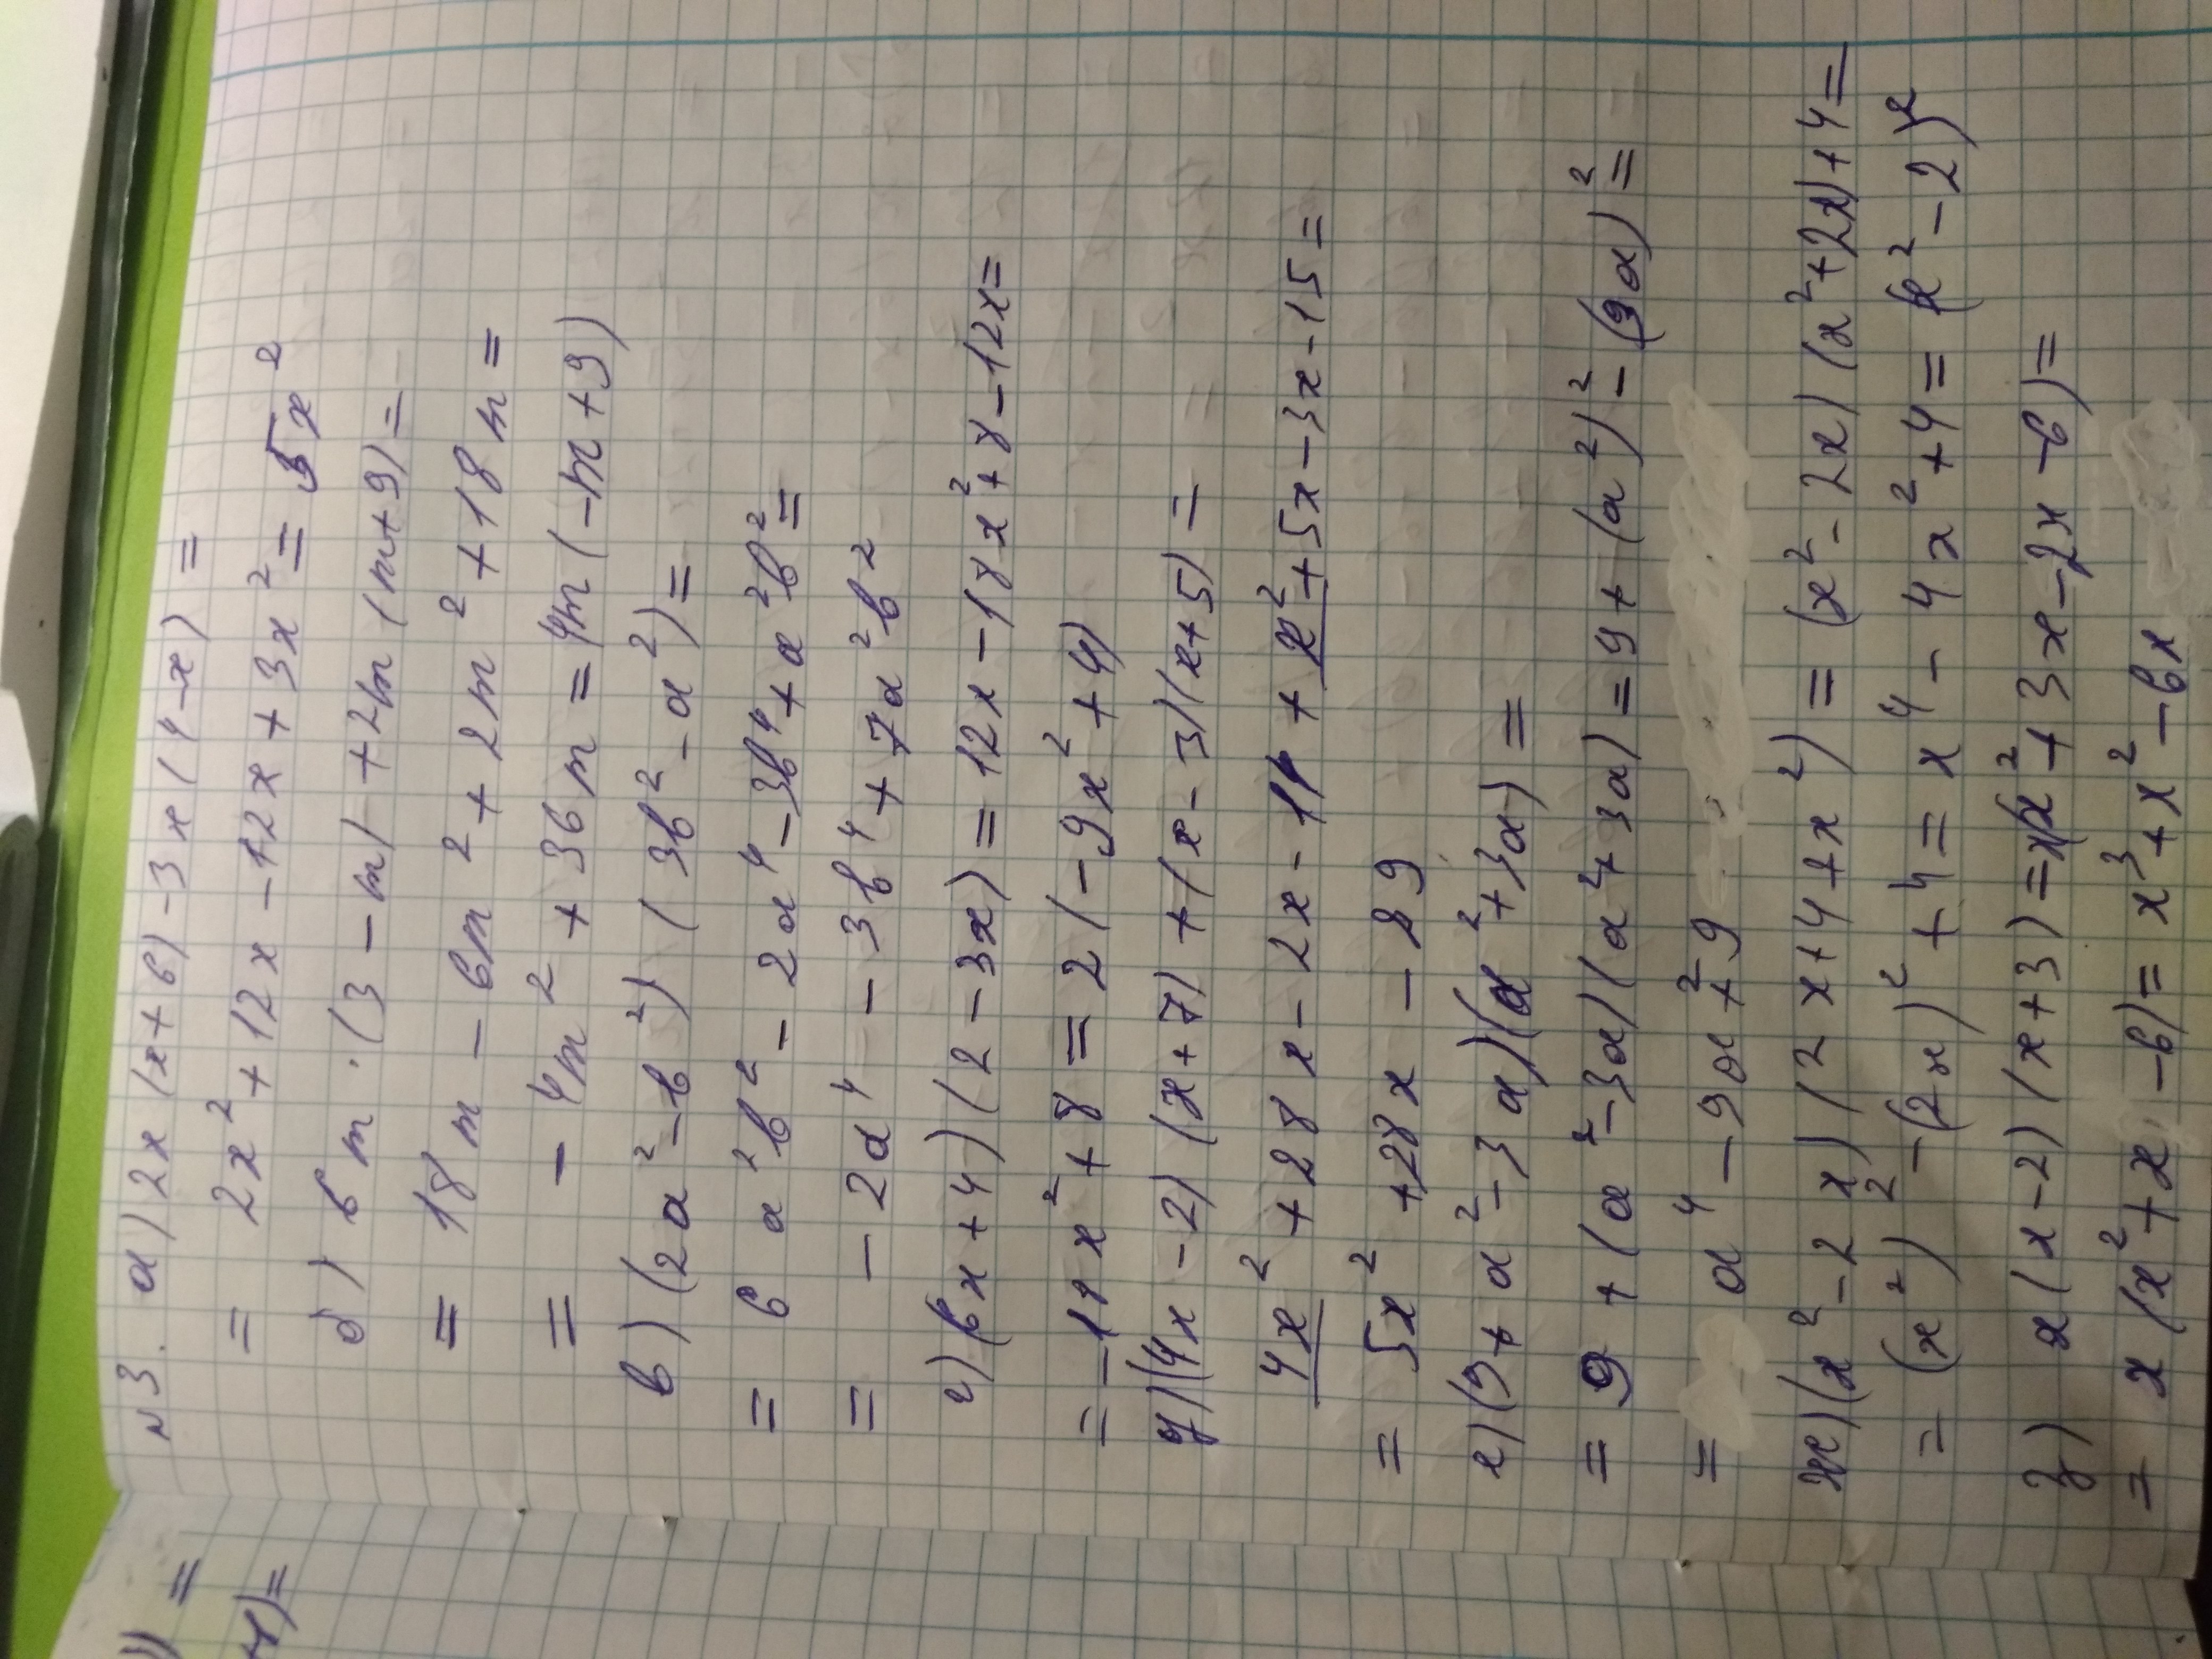 №3. а) 2x(x+6)-3x(4-x) =
= 2x²+12x-12x+3x² = 5x²
б) 6m·(3-m)+2m(m+9)=
= 18m-6m²+2m²+18m=
= -4m²+36m=4m(-m+9)
в) (2a²-b²)(3b²-a²)=
= 6a²b²-2a⁴-3b⁴+a²b²=
= -2a⁴-3b⁴+7a²b²
г) (6x+4)(2-3x)=12x-18x²+8-12x=
= -18x²+8=2(-9x²+4)
д) (4x-2)(x+7)+(x-3)(x+5)=
4x²+28x-2x-14+x²+5x-3x-15=
= 5x²+28x-29
е) (9+a²-3a)(a²+3a)=
= 9+(a²-3a)(a²+3a)=9+(a²)²-(3a)²=
= a⁴-9a²+9
ж) (x²-2x)(2x+4+x²)=(x²-2x)(x²+2x)+4=
= (x²)²-(2x)²+4=x⁴-4x²+4=(x²-2)²
з) x(x-2)(x+3)=x(x²+3x-2x-6)=
= x(x²+x-6)=x³+x²-6x
=